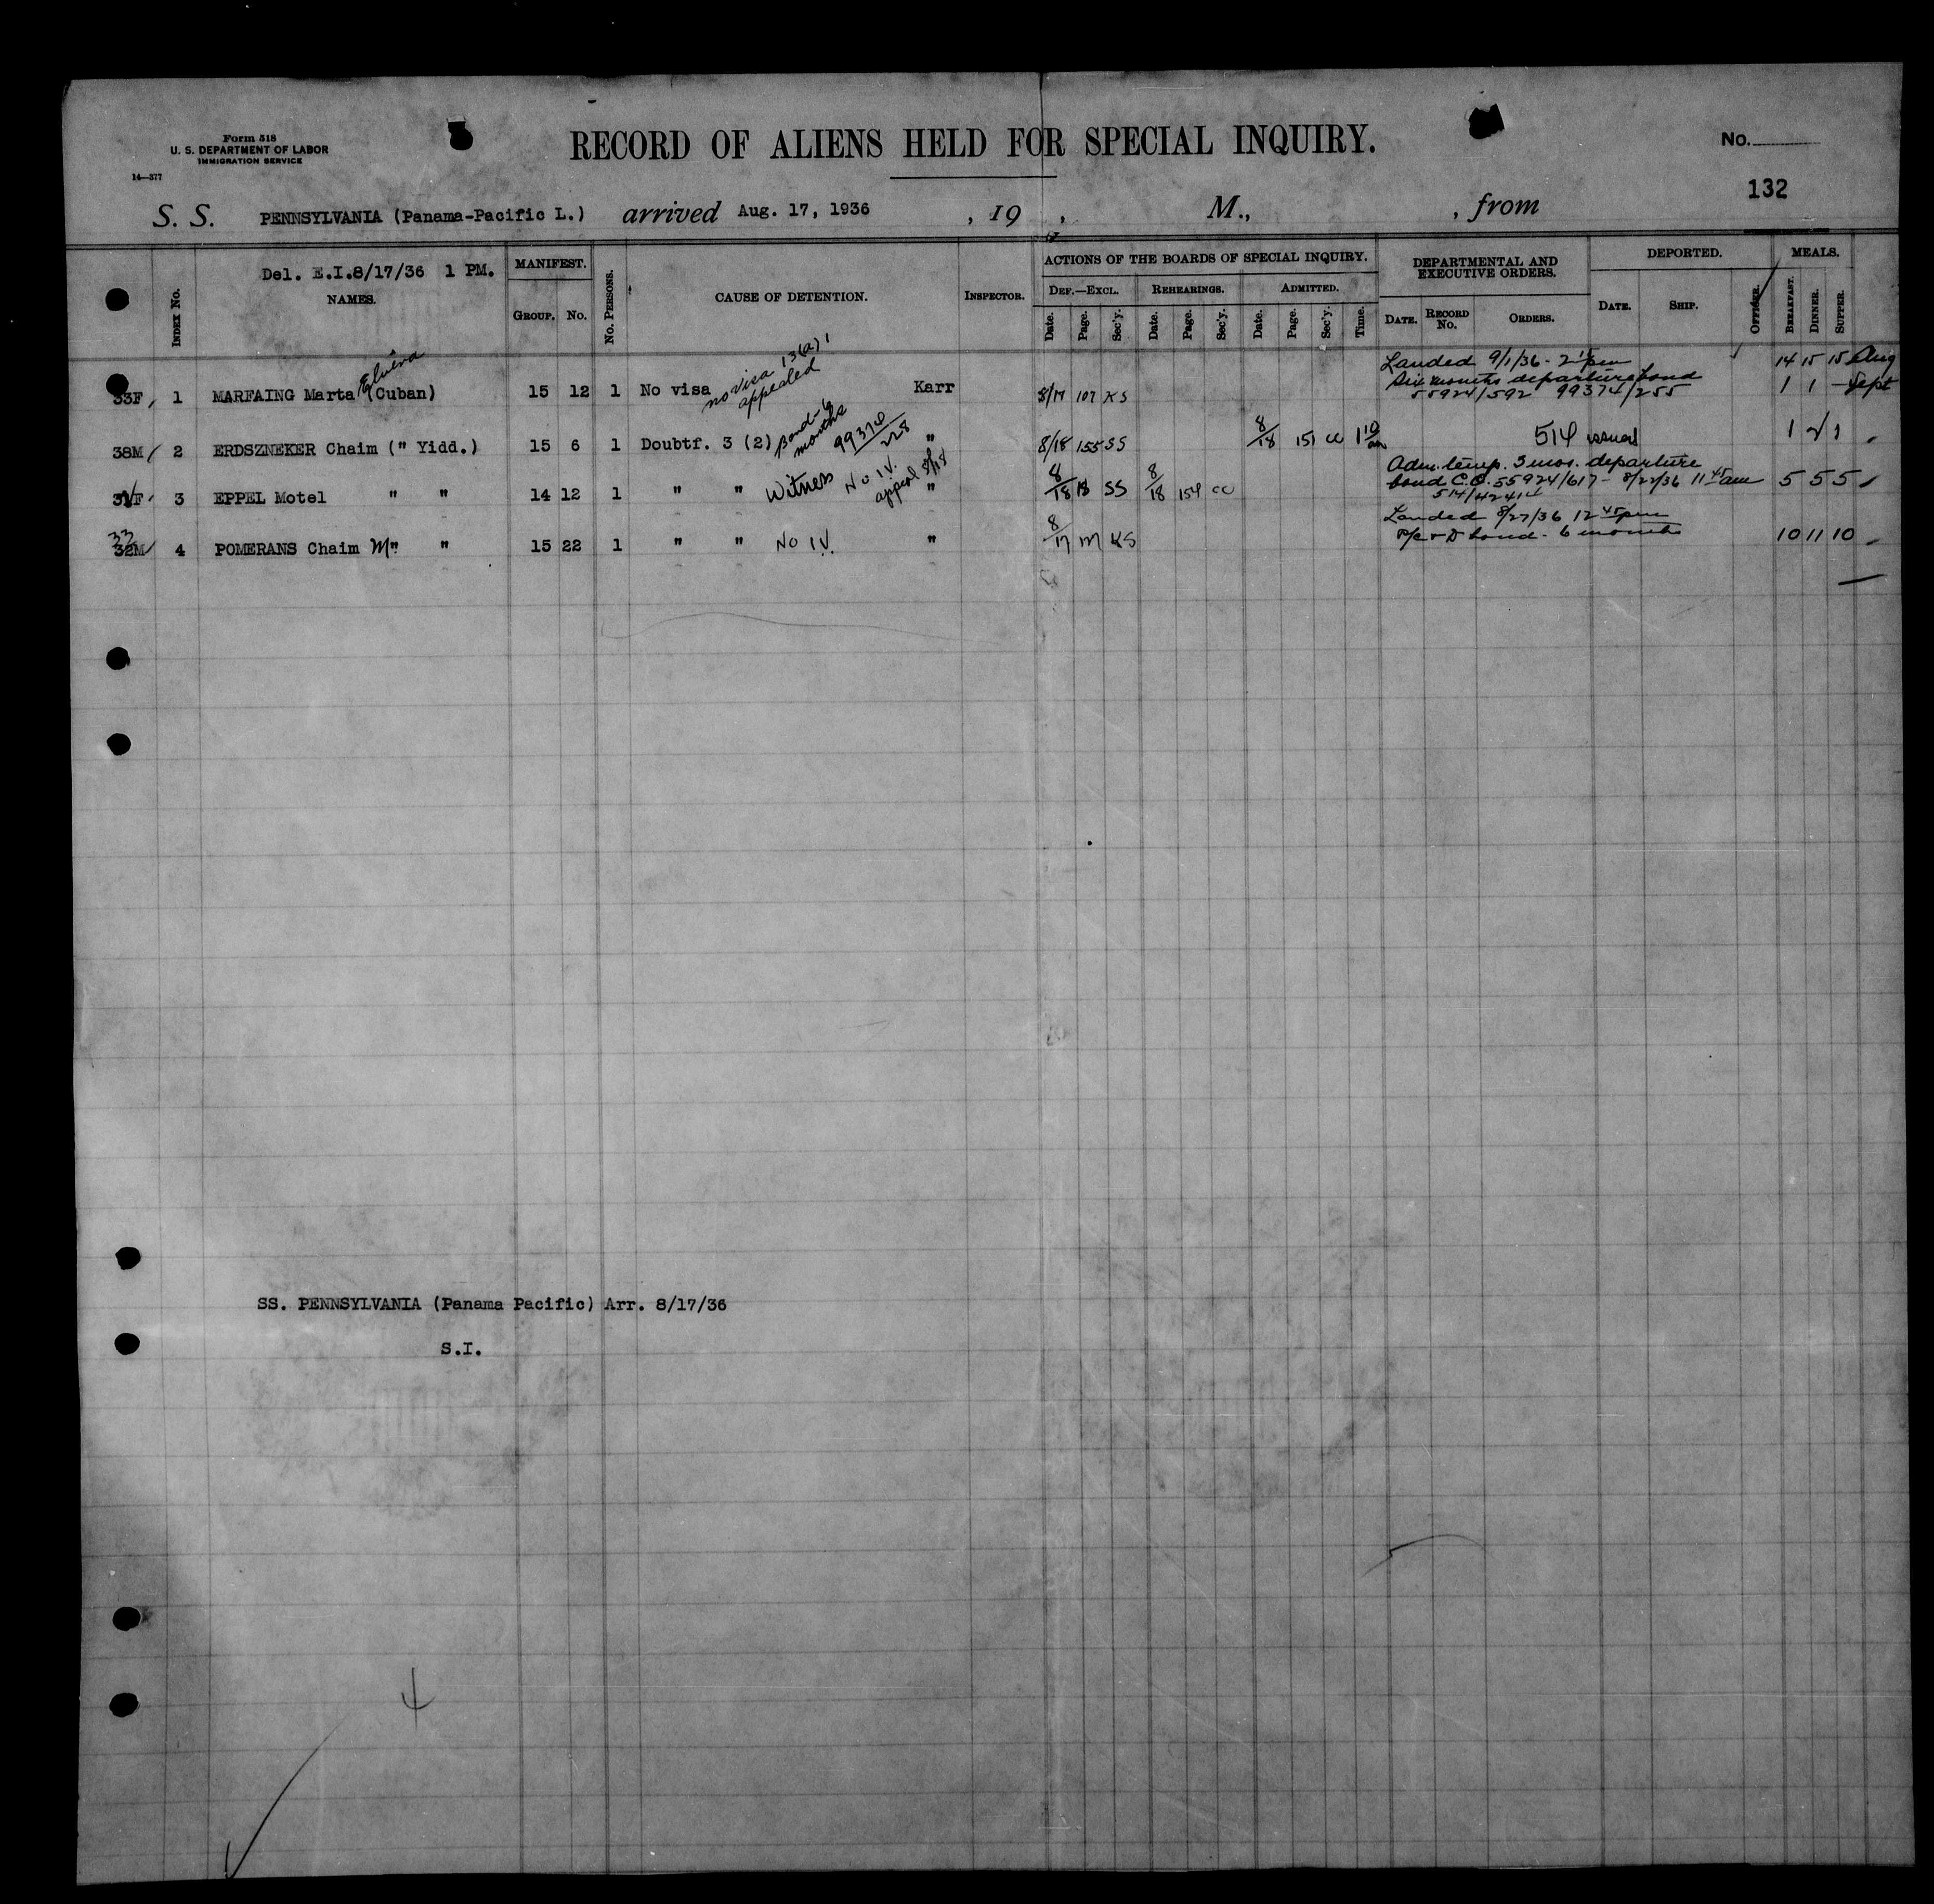 Form 518
U. S. DEPARTMENT OF LABOR
IMMIGRATION SERVICE
14—377
RECORD OF ALIENS HELD FOR SPECIAL INQUIRY.
No.
132
S. S. PENNSYLVANIA (Panama-Pacific L.) arrived Aug. 17, 1936 , 19 , M., , from
Del. E.I.8/17/36 1 PM.
INDEX No. NAMES. MANIFEST. GROUP. No. No. PERSONS. CAUSE OF DETENTION. INSPECTOR.
ACTIONS OF THE BOARDS OF SPECIAL INQUIRY.
DEF.—EXCL. REHEARINGS. ADMITTED.
Date. Page. Sec'y. Date. Page. Sec'y. Date. Page. Sec'y. Time.
DEPARTMENTAL AND EXECUTIVE ORDERS.
DATE. RECORD No. ORDERS.
DEPORTED.
DATE. SHIP. OFFICER.
MEALS.
BREAKFAST. DINNER. SUPPER.
Elvira
no visa 13(a) 1
appealed
Landed 9/1/36 - 2 15 pm 14 15 15 Aug
33F 1 MARFAING Marta (Cuban) 15 12 1 No visa Karr 8/17 107 KS Six months departure bond 1 1 — Sept
55924/592 99374/255
Bond-6 months 99374/228
38M 2 ERDSZNEKER Chaim (" Yidd.) 15 6 1 Doubtf. 3 (2) " 8/18 155 SS 8/18 151 CC 1 10 514 issued 1 1
Adm. temp. 3 mos. departure
3 EPPEL Motel " " 14 12 1 " " Witness No I.V. appeal 8/18 " 8/18 18 SS 8/18 154 CC bond C.O. 55924/617 - 8/22/36 11 45 am 5 5 5
Landed 8/27/36 12 45 pm
33
32M 4 POMERANS Chaim M" " 15 22 1 " " No I.V. " 8/17 KS bond - 6 months 10 11 10
SS. PENNSYLVANIA (Panama Pacific) Arr. 8/17/36
S.I.
4